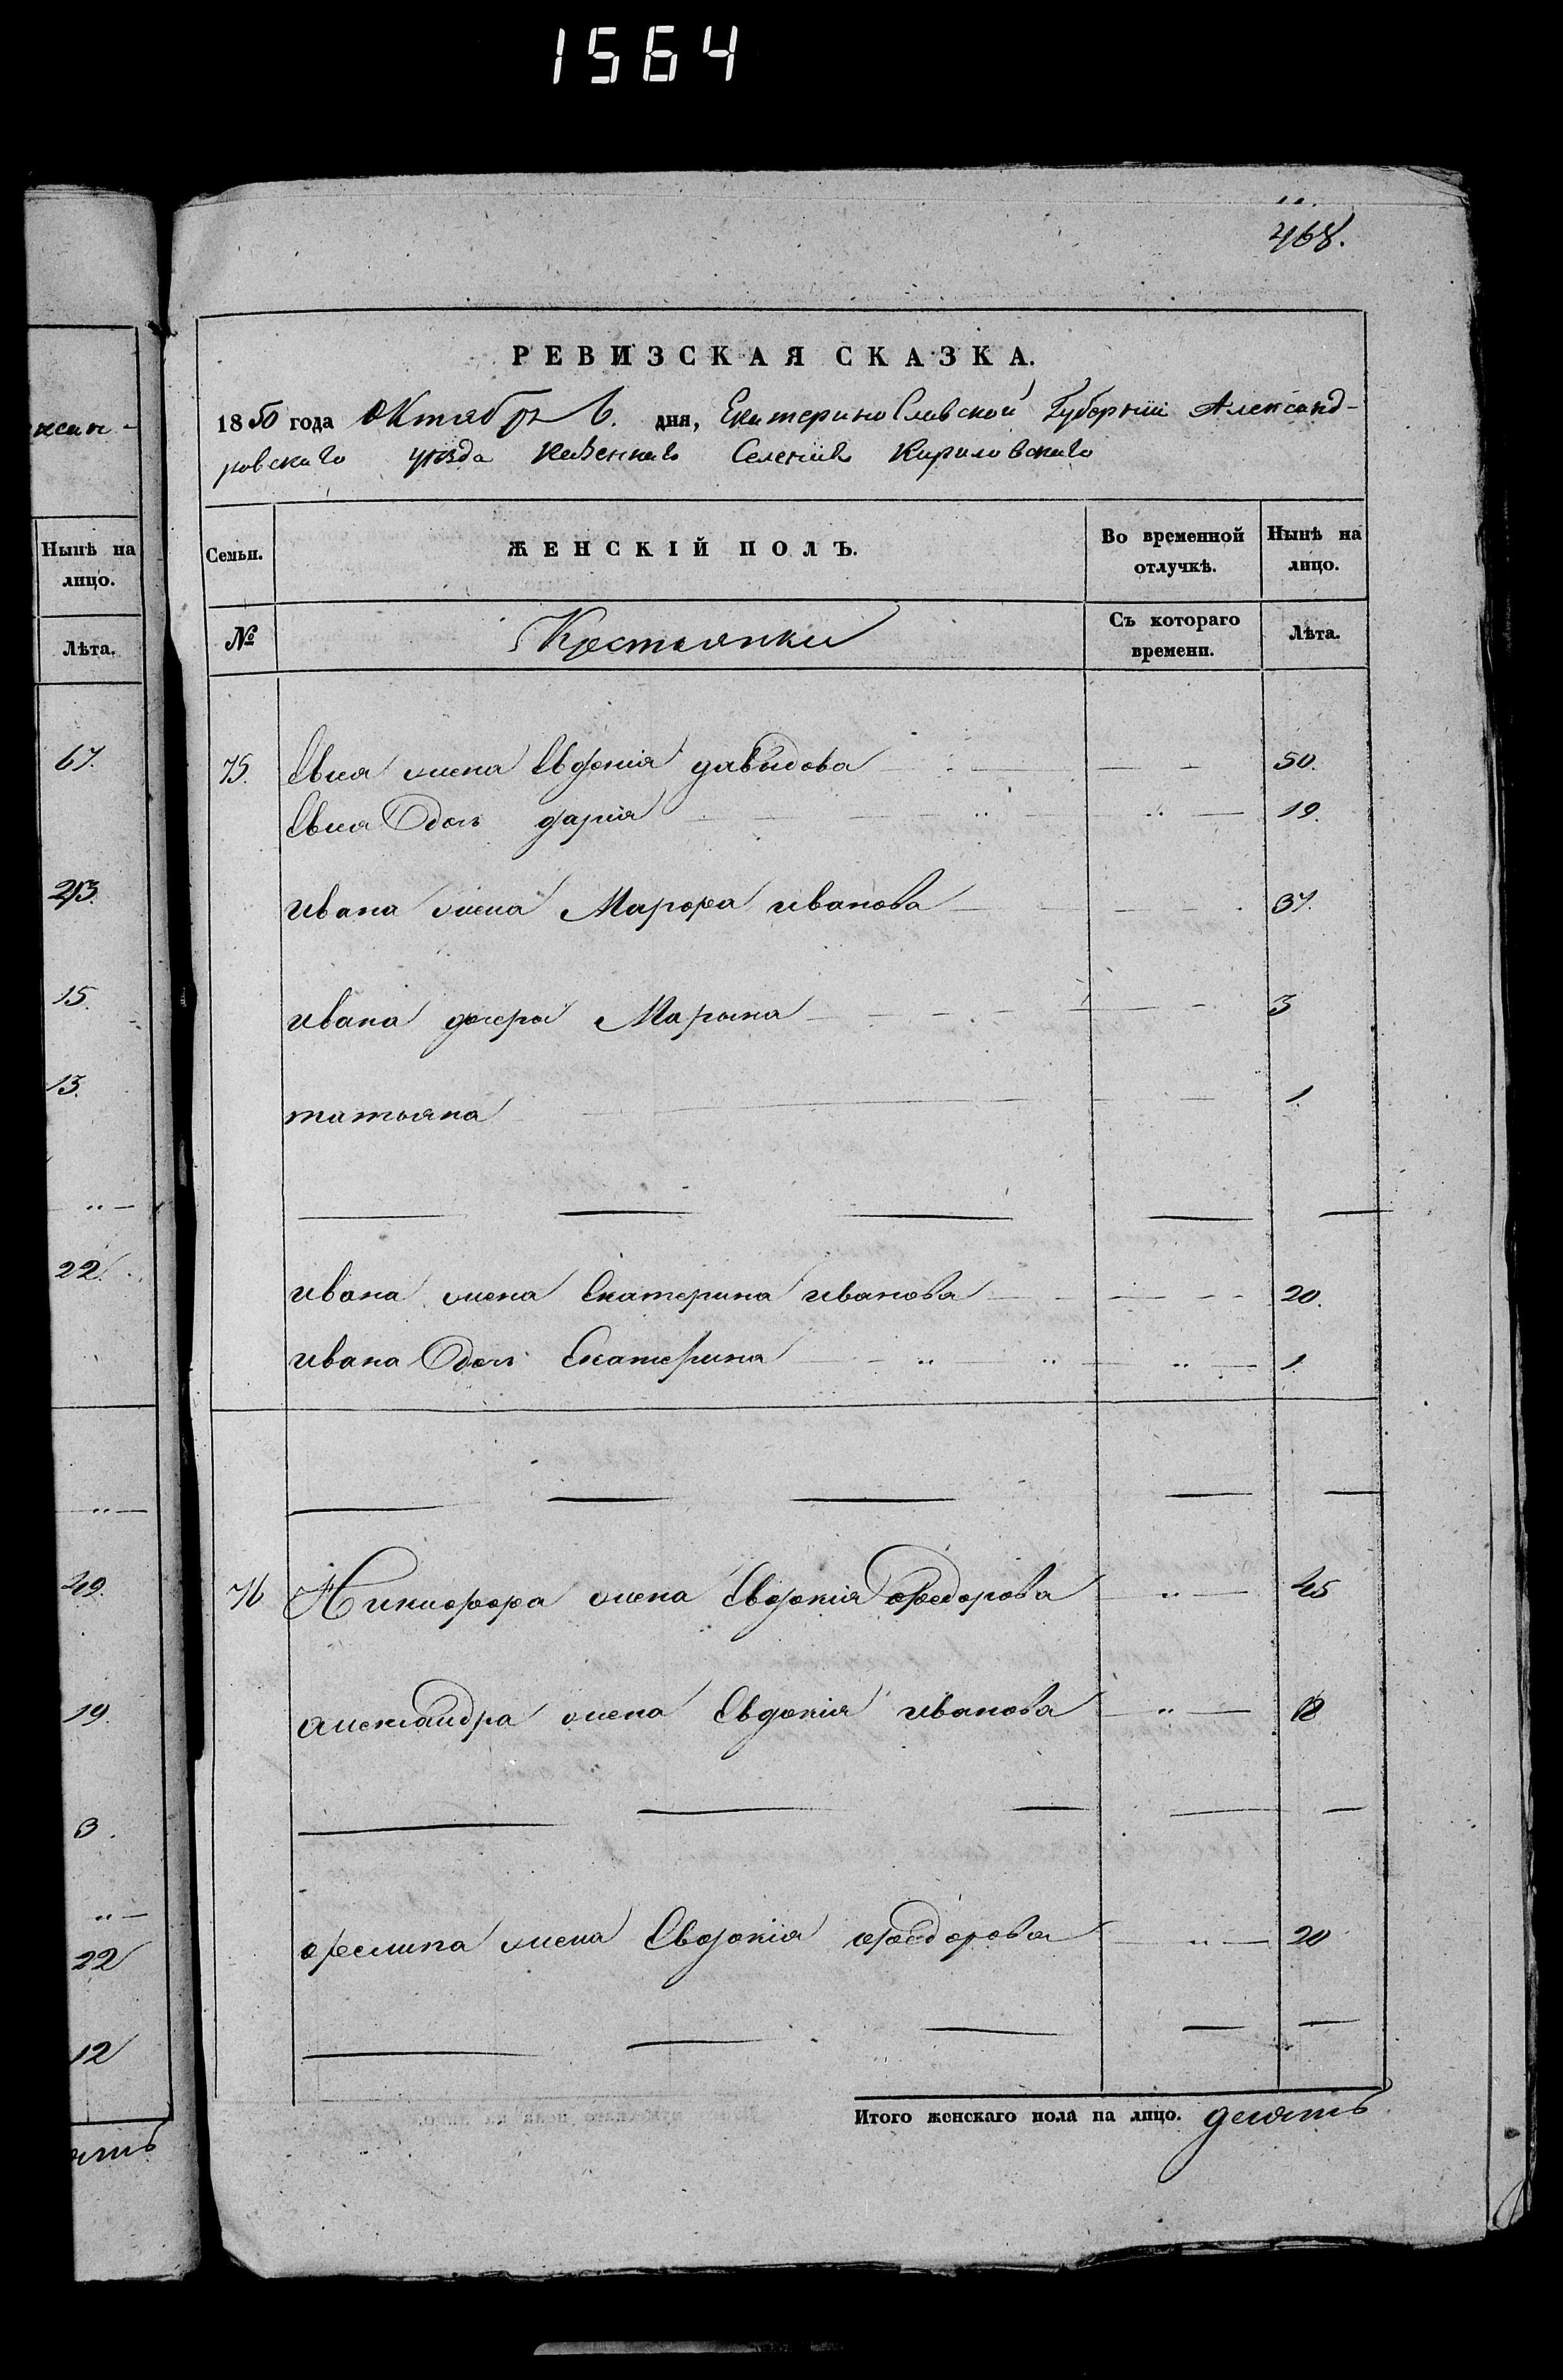 1564
468.
РЕВИЗСКАЯ СКАЗКА.
1850 года Октября 6. дня, Екатеринославской Губерніи Александ-
ровскаго уезда казеннаго Селенія Кириловскаго
Семьи.
ЖЕНСКІЙ ПОЛЪ.
Во временной отлучкѣ.
Нынѣ на лицо.
№
Крестьянки
Съ котораго времени.
Лѣта.
75. Евсия жена Евдокія давыдова 50.
Евсия дочь дарія 19.
Ивана жена Марфа иванова 37.
Ивана дочери Марьяна 3
татьяна 1.
Ивана жена Екатерина иванова 20.
Ивана дочь Екатерина 1.
76 Никифора жена Евдокія федорова 45
александра жена Евдокія иванова 18
жена Евдокія федорова 20
Итого женскаго пола на лицо. десять
Нынѣ на
лицо.
Лѣта.
67.
23.
15.
13.
22.
49.
19.
3.
22
12
ять